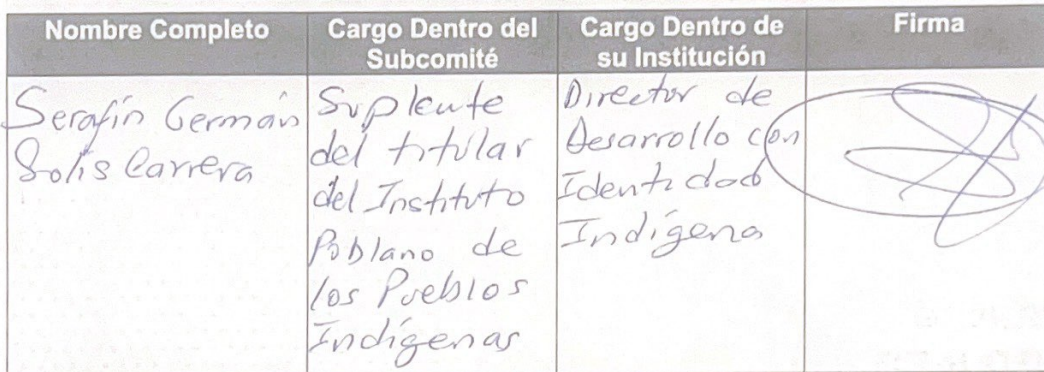 Nombre Completo
Cargo Dentro del
Subcomité
Cargo Dentro de
su Institución
Firma
Serafín Germán
Solis Carrera
Suplente
del titular
del Instituto
Poblano de
los Pueblos
Indígenas
Director de
Desarrollo con
Identidad
Indígena